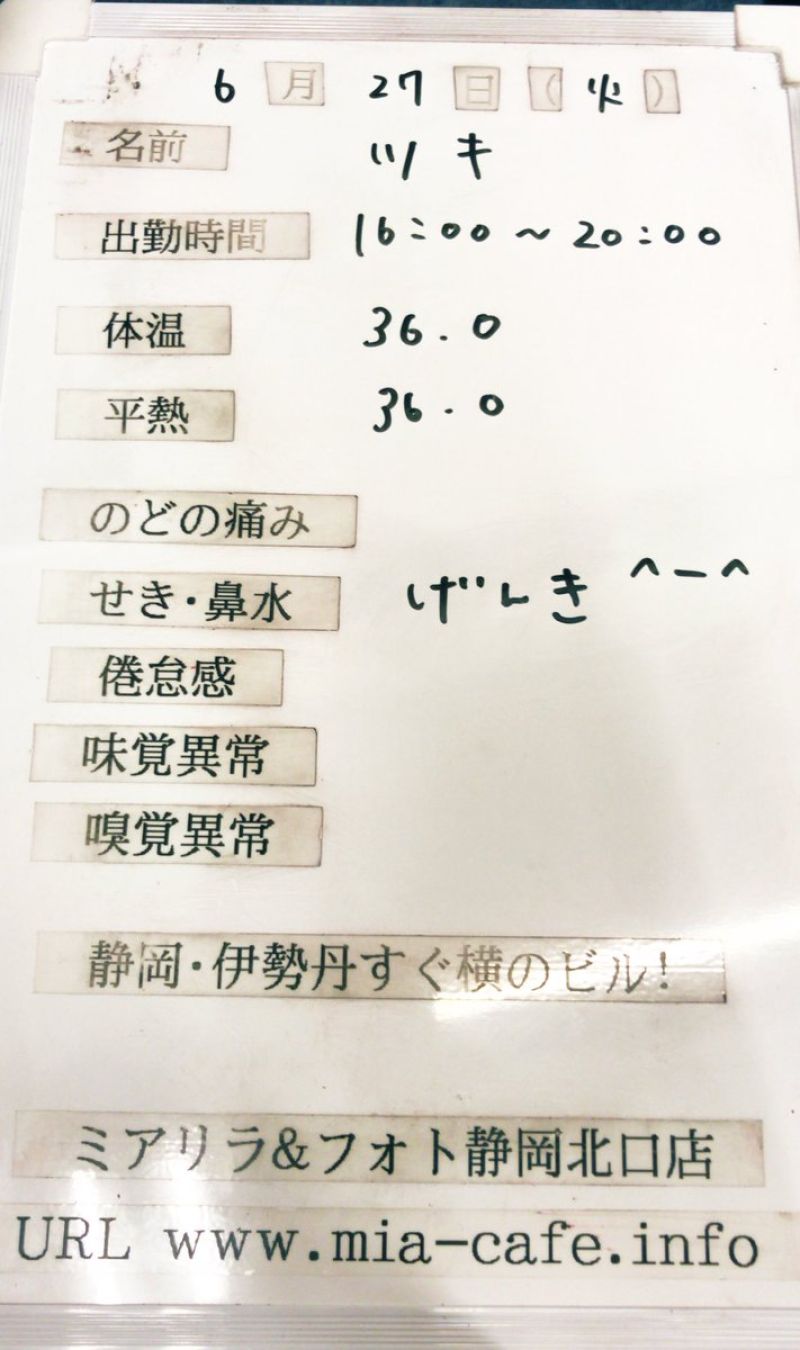 6月27日(火)
名前 ツキ
出勤時間 16:00~20:00
体温 36.0
平熱 36.0
のどの痛み
せき・鼻水 げんき ^ー^
倦怠感
味覚異常
嗅覚異常
静岡・伊勢丹すぐ横のビル!
ミアリラ&フォト静岡北口店
URL www.mia-cafe.info